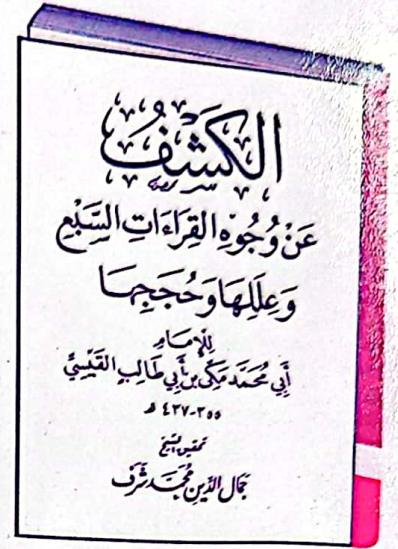 الكَشْفُ
عَنْ وُجُوهِ القِرَاءَاتِ السَّبْعِ
وَعِلَلِهَا وَحُجَجِهَا
لِلْإِمَامِ
أَبِي مُحَمَّد مَكِّي بن أَبِي طَالِب القَيْسِيّ
٣٥٥-٤٣٧ هـ
تحقيق الشيخ
جمال الدين محمد شرف